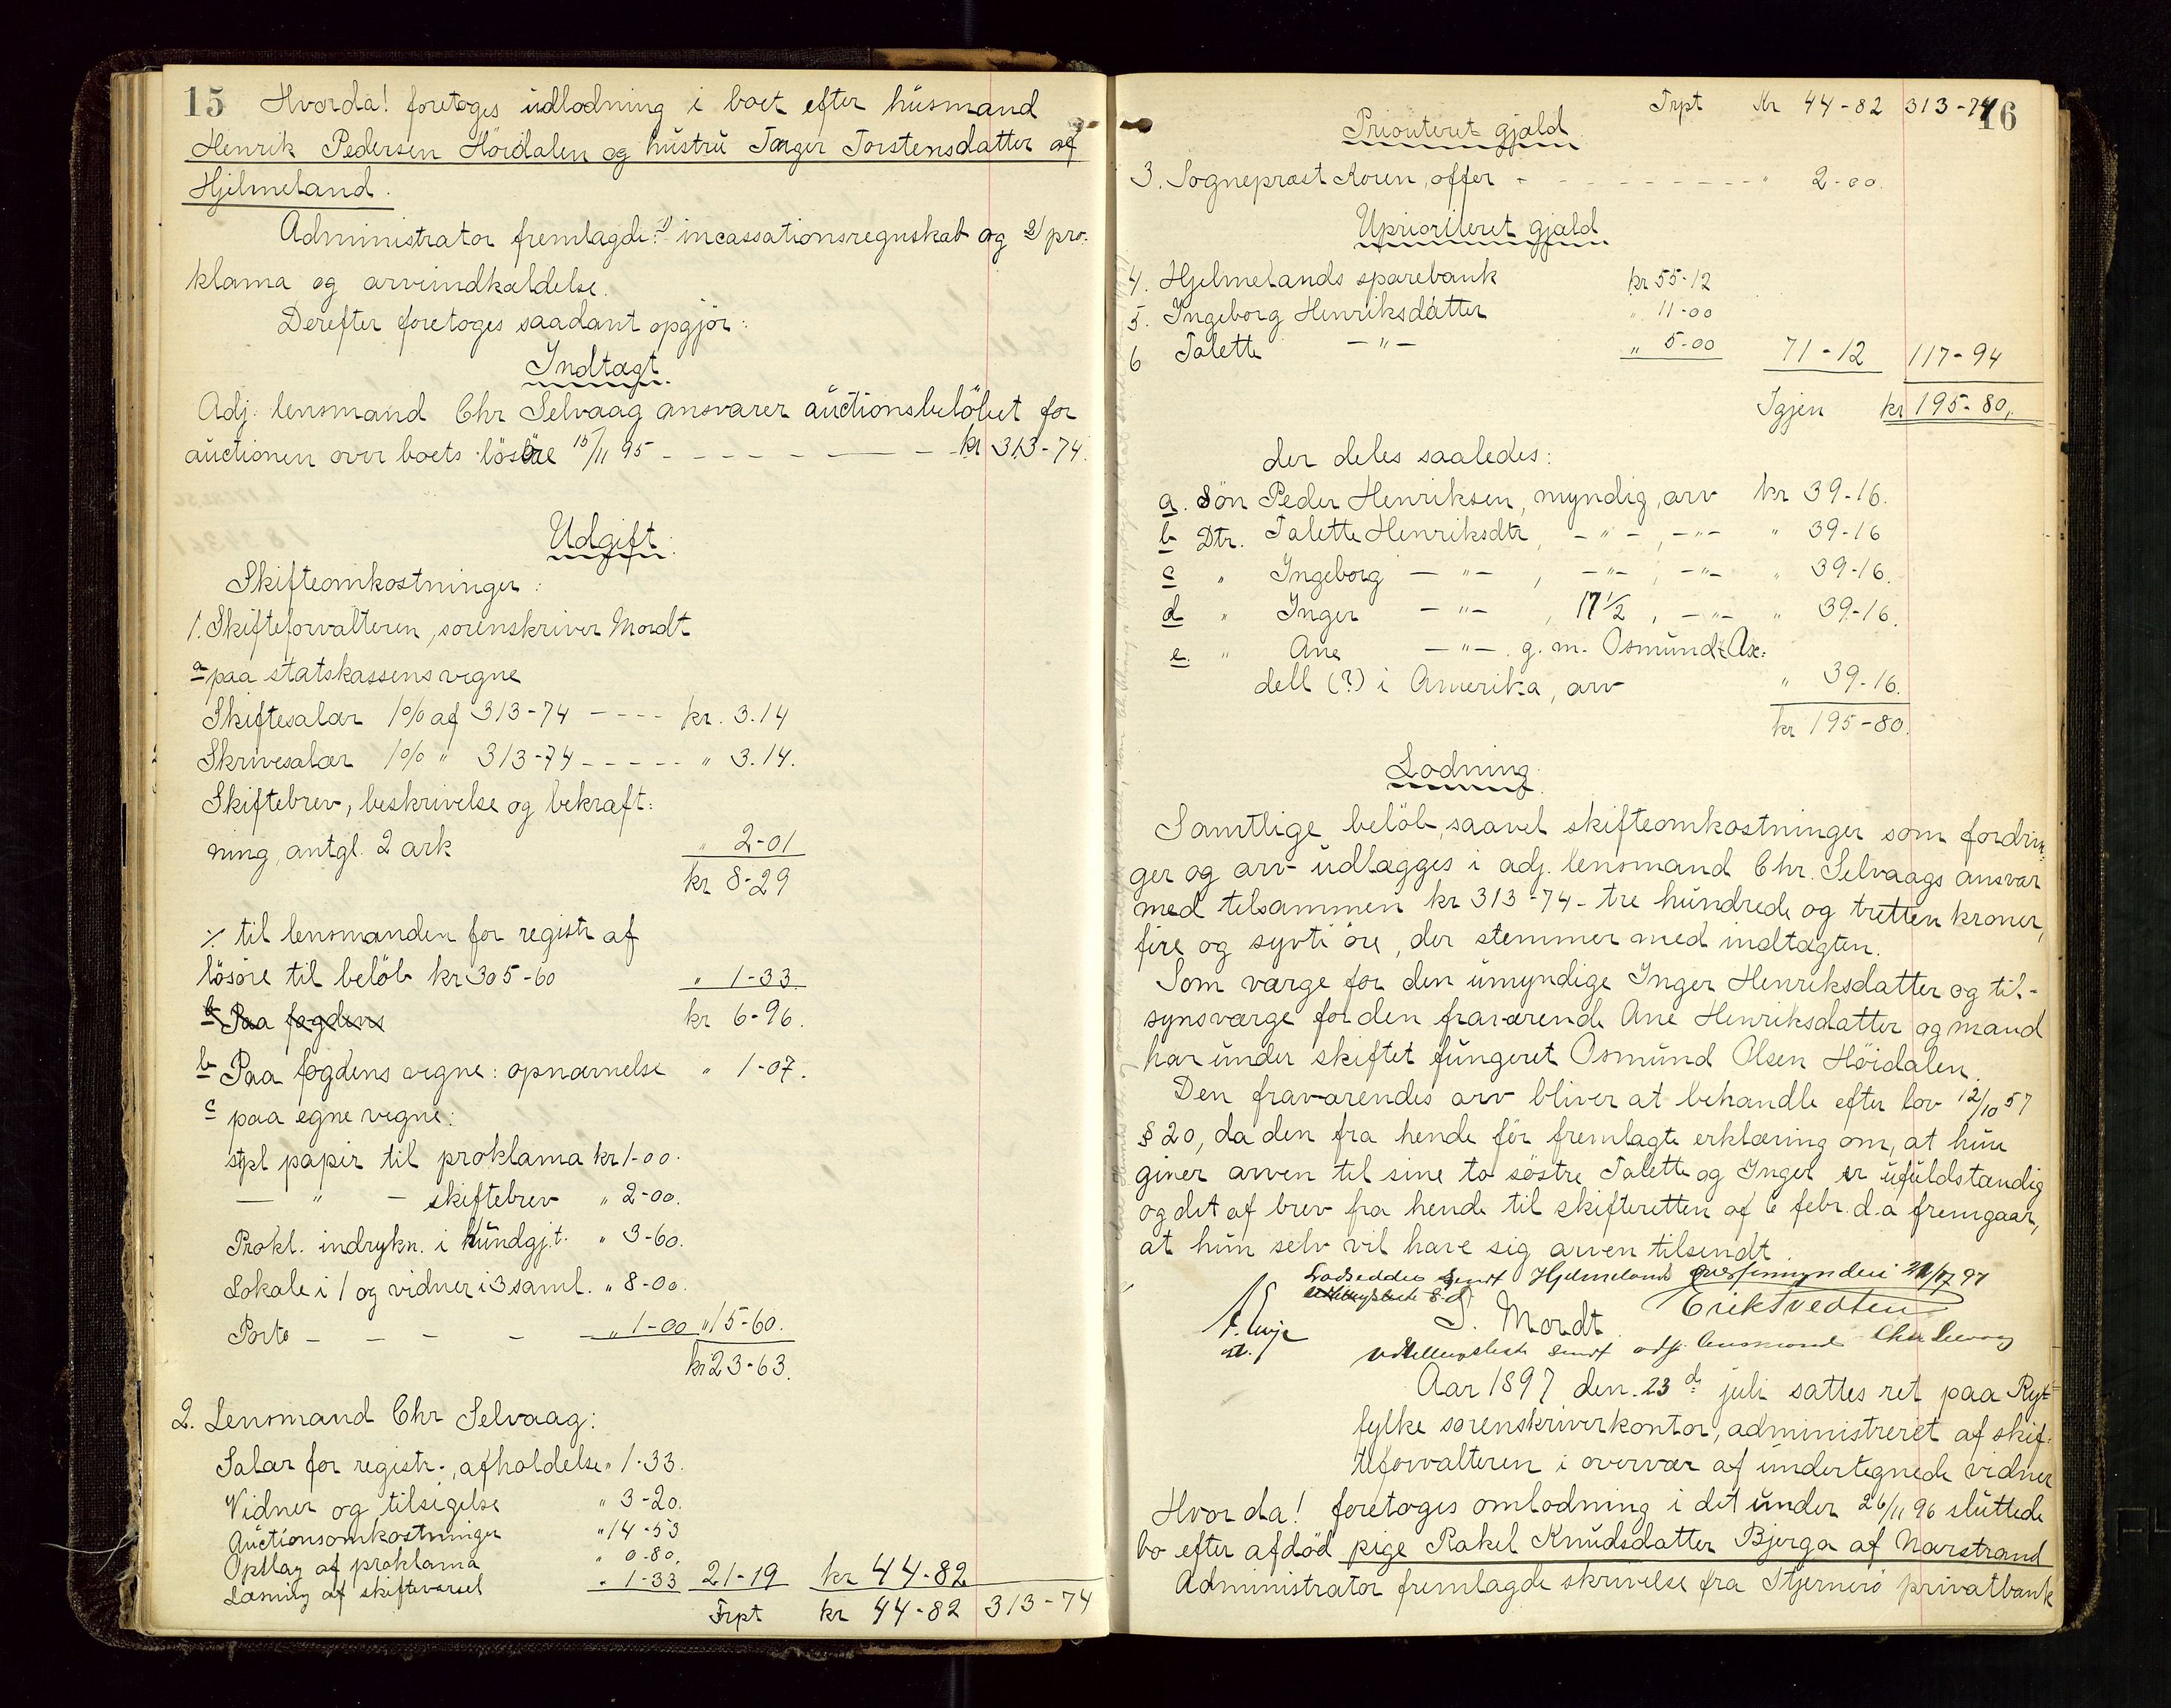 15 Hvorda! foretoges udlodning i boet efter husmand
Henrik Pedersen Höidalen og hustru Inger Torstensdatter af
Hjelmeland.
Administrator fremlagde: 1) incassationsregnskab og 2) pro-
klama og arveindkaldelse.
Derefter foretoges saadant opgjör:
Indtægt.
Adj. lensmand Chr Selvaag ansvarer auctionsbelöbet for
auctionen over boets lösöre 15/11 95 - - - - - - - kr 313-74.
Udgift:
Skifteomkostninger:
1. Skifteforvalteren, sorenskriver Mordt
a paa statskassens vegne
Skiftesalær 1% af 313-74 - - - - kr. 3.14
Skrivesalær 1% " 313-74 - - - - - " 3.14.
Skiftebrev, beskrivelse og bekræft:
ning, antgl. 2 ark " 2-01
kr 8-29
÷ til lensmanden for registr af
lösöre til belöb kr 305-60 " 1-33
b Paa fogdens kr 6-96.
b Paa fogdens vegne: opnævnelse " 1-07.
c paa egne vegne:
stpl papir til proklama kr 1-00.
— " — skiftebrev " 2-00.
Prokl. indrykn. i kundgj.t. " 3-60.
Lokale i 1 og vidner i 3 saml. " 8-00.
Porto - - - - - " 1-00 " 15-60.
kr 23-63.
2. Lensmand Chr Selvaag:
Salær for registr., afholdelse " 1-33.
Vidner og tilsigelse " 3-20.
Auctionsomkostninger " 14-53
Opslag af proklama " 0-80.
Læsning af skiftevarsel " 1-33 21-19 kr 44-82
Trpt kr 44-82 313-74
Trpt kr 44-82 313-74 16
Prioriteret gjæld
3. Sogneprest Koren, offer - - - - - - - - - " 2-00.
Uprioriteret gjæld
4. Hjelmelands sparebank kr 55-12
5. Ingeborg Henriksdatter " 11-00
6 Talette —"— " 5-00 71-12 117-94
Igjen kr 195-80,
der deles saaledes:
a. Sön Peder Henriksen, myndig, arv kr 39-16.
b Dtr. Talette Henriksdtr, -"-, -"- " 39-16
c " Ingeborg —"—, —"—, —"— " 39-16.
d " Inger —"—, 17 1/2, —"— " 39-16.
e. " Ane —"—. g. m. Osmund Ax:
dell (?) i Amerika, arv " 39-16.
kr 195-80.
Lodning.
Samtlige belöb, saavel skifteomkostninger som fordrin:
ger og arv udlægges i adj. lensmand Chr. Selvaags ansvar
med tilsammen kr 313-74 - tre hundrede og tretten kroner,
fire og syvti öre, der stemmer med indtægten.
Som værge for den umyndige Inger Henriksdatter og til-
synsværge for den fraværende Ane Henriksdatter og mand
har under skiftet fungeret Osmund Olsen Höidalen.
Den fraværendes arv bliver at behandle efter lov 12/10 57
§ 20, da den fra hende för fremlagte erklæring om, at hun
giver arven til sine to söstre Talette og Inger er ufuldstændig
og det af brev fra hende til skifteretten af 6 febr. d.a fremgaar,
at hun selv vil have sig arven tilsendt.
Lodseddler sendt Hjelmelands overformynderi 97
S. Mordt. Erik Tvedten
Udtellingsliste sendt adj. lensmand Chr Selvaag
Aar 1897 den 23d juli sattes ret paa Ryf-
fylke sorenskriverkontor, administreret af skif-
teforvalteren i overvær af undertegnede vidner
Hvor da! foretoges omlodning i det under 26/11 96 sluttede
bo efter afdöd pige Rakel Knudsdatter Bjerga af Narstrand
Administrator fremlagde skrivelse fra Stjernerö privatbank